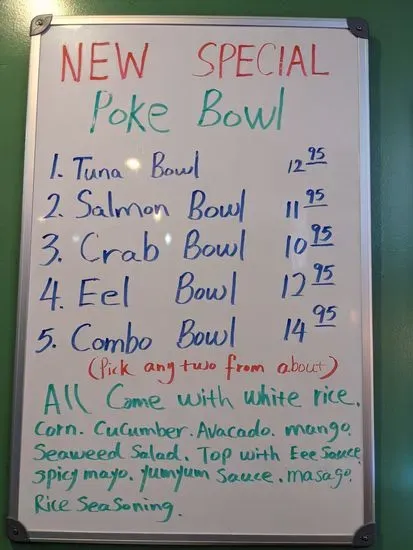 NEW SPECIAL
Poke Bowl
1. Tuna Bowl 12 95
2. Salmon Bowl 11 95
3. Crab Bowl 10 95
4. Eel Bowl 12 95
5. Combo Bowl 14 95
(Pick any two from about)
All Come with white rice.
Corn. Cucumber. Avacado. mango.
Seaweed Salad. Top with Eee Sauce
spicy mayo. yumyum Sauce. masago.
Rice Seasoning.